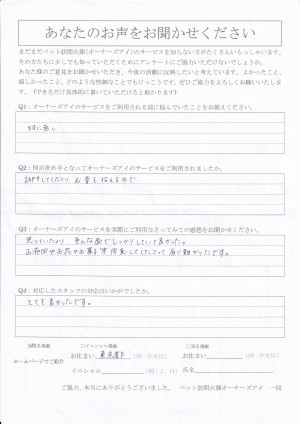 あなたのお声をお聞かせください
まだまだペット訪問火葬(オーナーズアイ)のサービスを知らない方がたくさんいらっしゃいます。
その方たちに少しでも知っていただくためにアンケートにご協力いただけないでしょうか。
あなた様のご意見をお聞かせいただき、今後の活動に反映したいと考えています。よかったこと、
嬉しかったこと、どのような些細なことでもけっこうです。ぜひご協力をよろしくお願いいたしま
す。(できるだけ具体的に書いていただけると助かります)
Q1:オーナーズアイのサービスをご利用される前に悩んでいたことをお教えください。
特に無し
Q2:何が決め手となってオーナーズアイのサービスをご利用されましたか。
訪問してくださり、お骨も拾えるので
Q3:オーナーズアイのサービスを実際にご利用なさってみての感想をお聞かせください。
思っていたより、色んな面でしっかりしていて良かった。
お花やお菓子等用意してくださって有り難かったです。
Q4:対応したスタッフの対応はいかがでしたか。
とても良かったです。
匿名掲載
□イニシャル掲載
□氏名掲載
ホームページでご紹介
お住まい 東京都下 (例:中央区)
お住まい (例:中央区)
イニシャル (例:J.H)
氏名
ご協力、本当にありがとうございました。 ペット訪問火葬オーナーズアイ 一同